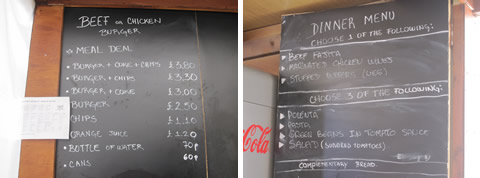 BEEF OR CHICKEN
BURGER
MEAL DEAL
BURGER + COKE + CHIPS £3.80
BURGER + CHIPS £3.30
BURGER + COKE £3.00
BURGER £2.50
CHIPS £1.10
ORANGE JUICE £1.20
BOTTLE OF WATER 70p
CANS 60p
DINNER MENU
CHOOSE 1 OF THE FOLLOWING:
BEEF FAJITA
MARINATED CHICKEN WINGS
STUFFED PEPPERS (VEG)
CHOOSE 3 OF THE FOLLOWING:
POLENTA
PASTA
GREEN BEANS IN TOMATO SAUCE
SALAD (SUNDRIED TOMATOES)
COMPLEMENTARY BREAD
Cola